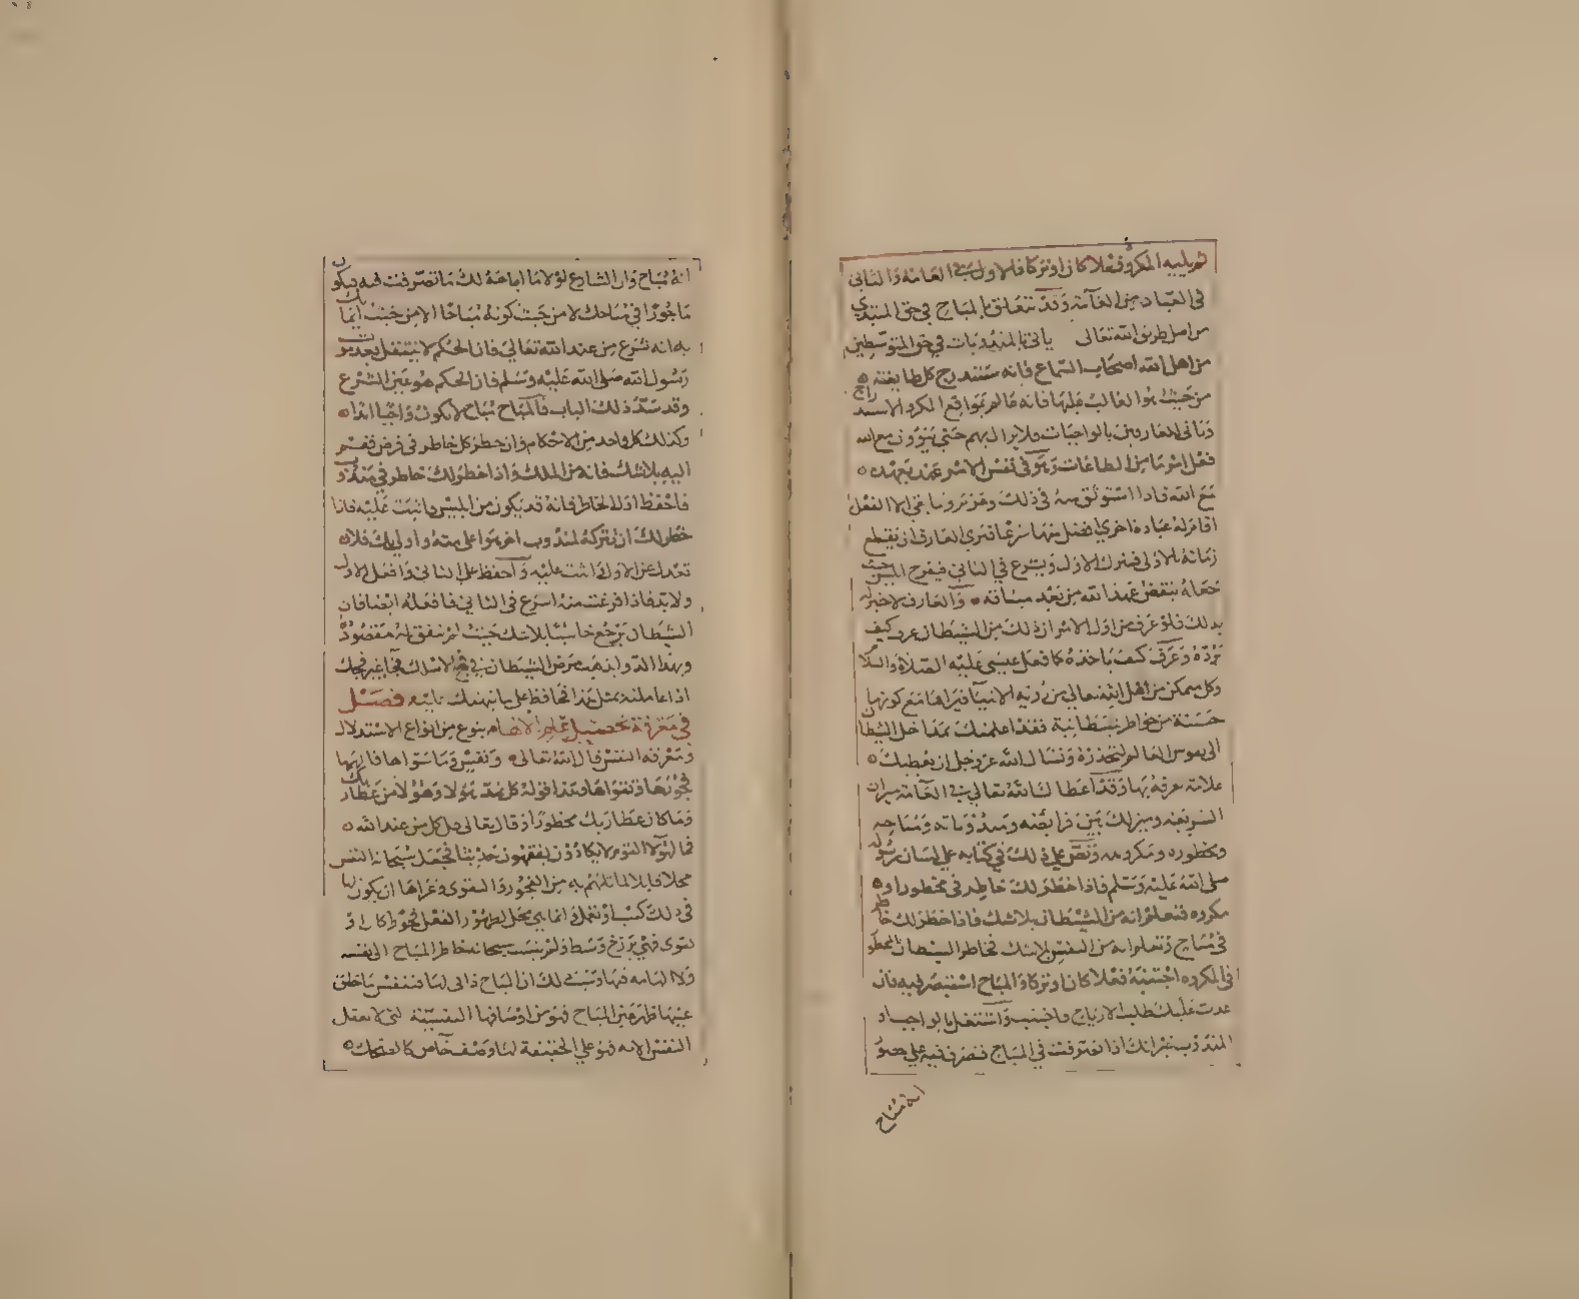 ثم يليه المكروه فعلا كان او تركا فالاول في العامة والثاني
في العباد من العامة وقد تتعلق بالمباح في حق المبتدي
من اهل طريق الله تعالى ياتي بالمندوبات في حق المتوسطين
من اهل الله اصحاب السماع فانه ستندرج كل طايفة
من حيث هو الغالب عليها فانه عالم بمواقع المكر والاستدراج
وياتي للعارفين بالواجبات فلا يزال بهم حتى ينوون مع الله
فعل امر ما من الطاعات وهو في نفس الامر عهد يعهده
مع الله فاذا استوثق منه في ذلك وعزم وما بقي الا الفعل
اقام له عبادة اخرى افضل منها شرعا فيرى العارف ان يقطع
زمانه بالاولى فيترك الاول ويشرع في الثاني فيفرح ابليس حيث
جعله ينقض عهد الله من بعد ميثاقه والعارف لا خبر له
بذلك فلو عرف من اول الامر ان ذلك من الشيطان عرف كيف
يرده وعرف كيف ياخذه كما فعل عيسى عليه الصلاة والسلام
وكل متمكن من اهل الله تعالى من ورثة الانبيا فيراها مع كونها
حسنة من خواطر شيطانية فقد اعلمتك بمداخل الشيطان
الى نفوس العالم لتحذره وتسال الله عز وجل ان يعطيك
علامة تعرفه بها وقد اعطاك الله تعالى في العامة ميزان
الشريعة وميز لك بين فرايضه ومندوباته ومباحه
ومحظوره ومكروهه ونص على ذلك في كتابه على لسان رسوله
صلى الله عليه وسلم فاذا خطر لك خاطر في محظور او
مكروه فتعلم انه من الشيطان بلا شك فاذا خطر لك خاطر
في مباح فتعلم انه من النفس بلا شك فخاطر الشيطان بالمحظور
والمكروه اجتنبه فعلا كان او تركا والمباح انت مخير فيه فان
غلب عليك طلب الارباح فاجتنبه واشتغل بالواجب او
المندوب غير انك اذا تصرفت في المباح فتصرف فيه على حضور
انه مباح
انه مباح وان الشارع لولا ما اباحه لك ما تصرفت فيه فيكون
ماجورا في مباحك لا من حيث كونه مباحا الا من حيث ايمانك
به انه شرع من عند الله تعالى فان الحكم لا ينتقل بعد موت
رسول الله صلى الله عليه وسلم فان الحكم هو عين الشرع
وقد سد ذلك الباب فالمباح مباح لا يكون واجبا ابدا
وكذلك كل واحد من الاحكام وان خطر لك خاطر في فرض فقم
اليه بلا شك فانه من الملك واذا خطر لك خاطر في مندوب
فاحفظ اول الخاطر فانه قد يكون من ابليس فاثبت عليه فاذا
خطر لك ان تتركه لمندوب اخر هو اعلى منه واولى بك فلا
تعدل عن الاول واثبت عليه واحفظ على الثاني وافعل الاول
ولا بد فاذا فرغت منه اشرع في الثاني فافعله ايضا فان
الشيطان يرجع خاسئا بلا شك حيث لم يتفق له مقصوده
وبهذا الدوا يذهب مرض الشيطان
اذا عاملته بمثل هذا فحافظ على ما نبهتك عليه فصل
في معرفة تحصيل علم الالهام بنوع من انواع الاستدلال
ومعرفة النفس قال الله تعالى ونفس وما سواها فالهمها
فجورها وتقواها وهذا قوله كلا نمد هؤلاء وهؤلاء من عطا ربك
وما كان عطا ربك محظورا وقال تعالى قل كل من عند الله
فما لهؤلاء القوم لا يكادون يفقهون حديثا فجعل سبحانه النفس
محلا قابلا لما تلهم به من الفجور والتقوى وعراها ان يكون لها
في ذلك كسب او تعمل وانما هي محل لظهور الفعل فجورا كان او
تقوى فهي برزخ وسط ولم ينسب سبحانه خاطر المباح الى نفسه
ولا الهامه فيها وسبب ذلك ان المباح ذاتي لها فبنفس ما خلق
عينها ظهر عين المباح فهو من اوصافها النفسية التي لا تعقل
النفس الا به فهو على الحقيقة لها وصف خاص كالضحك